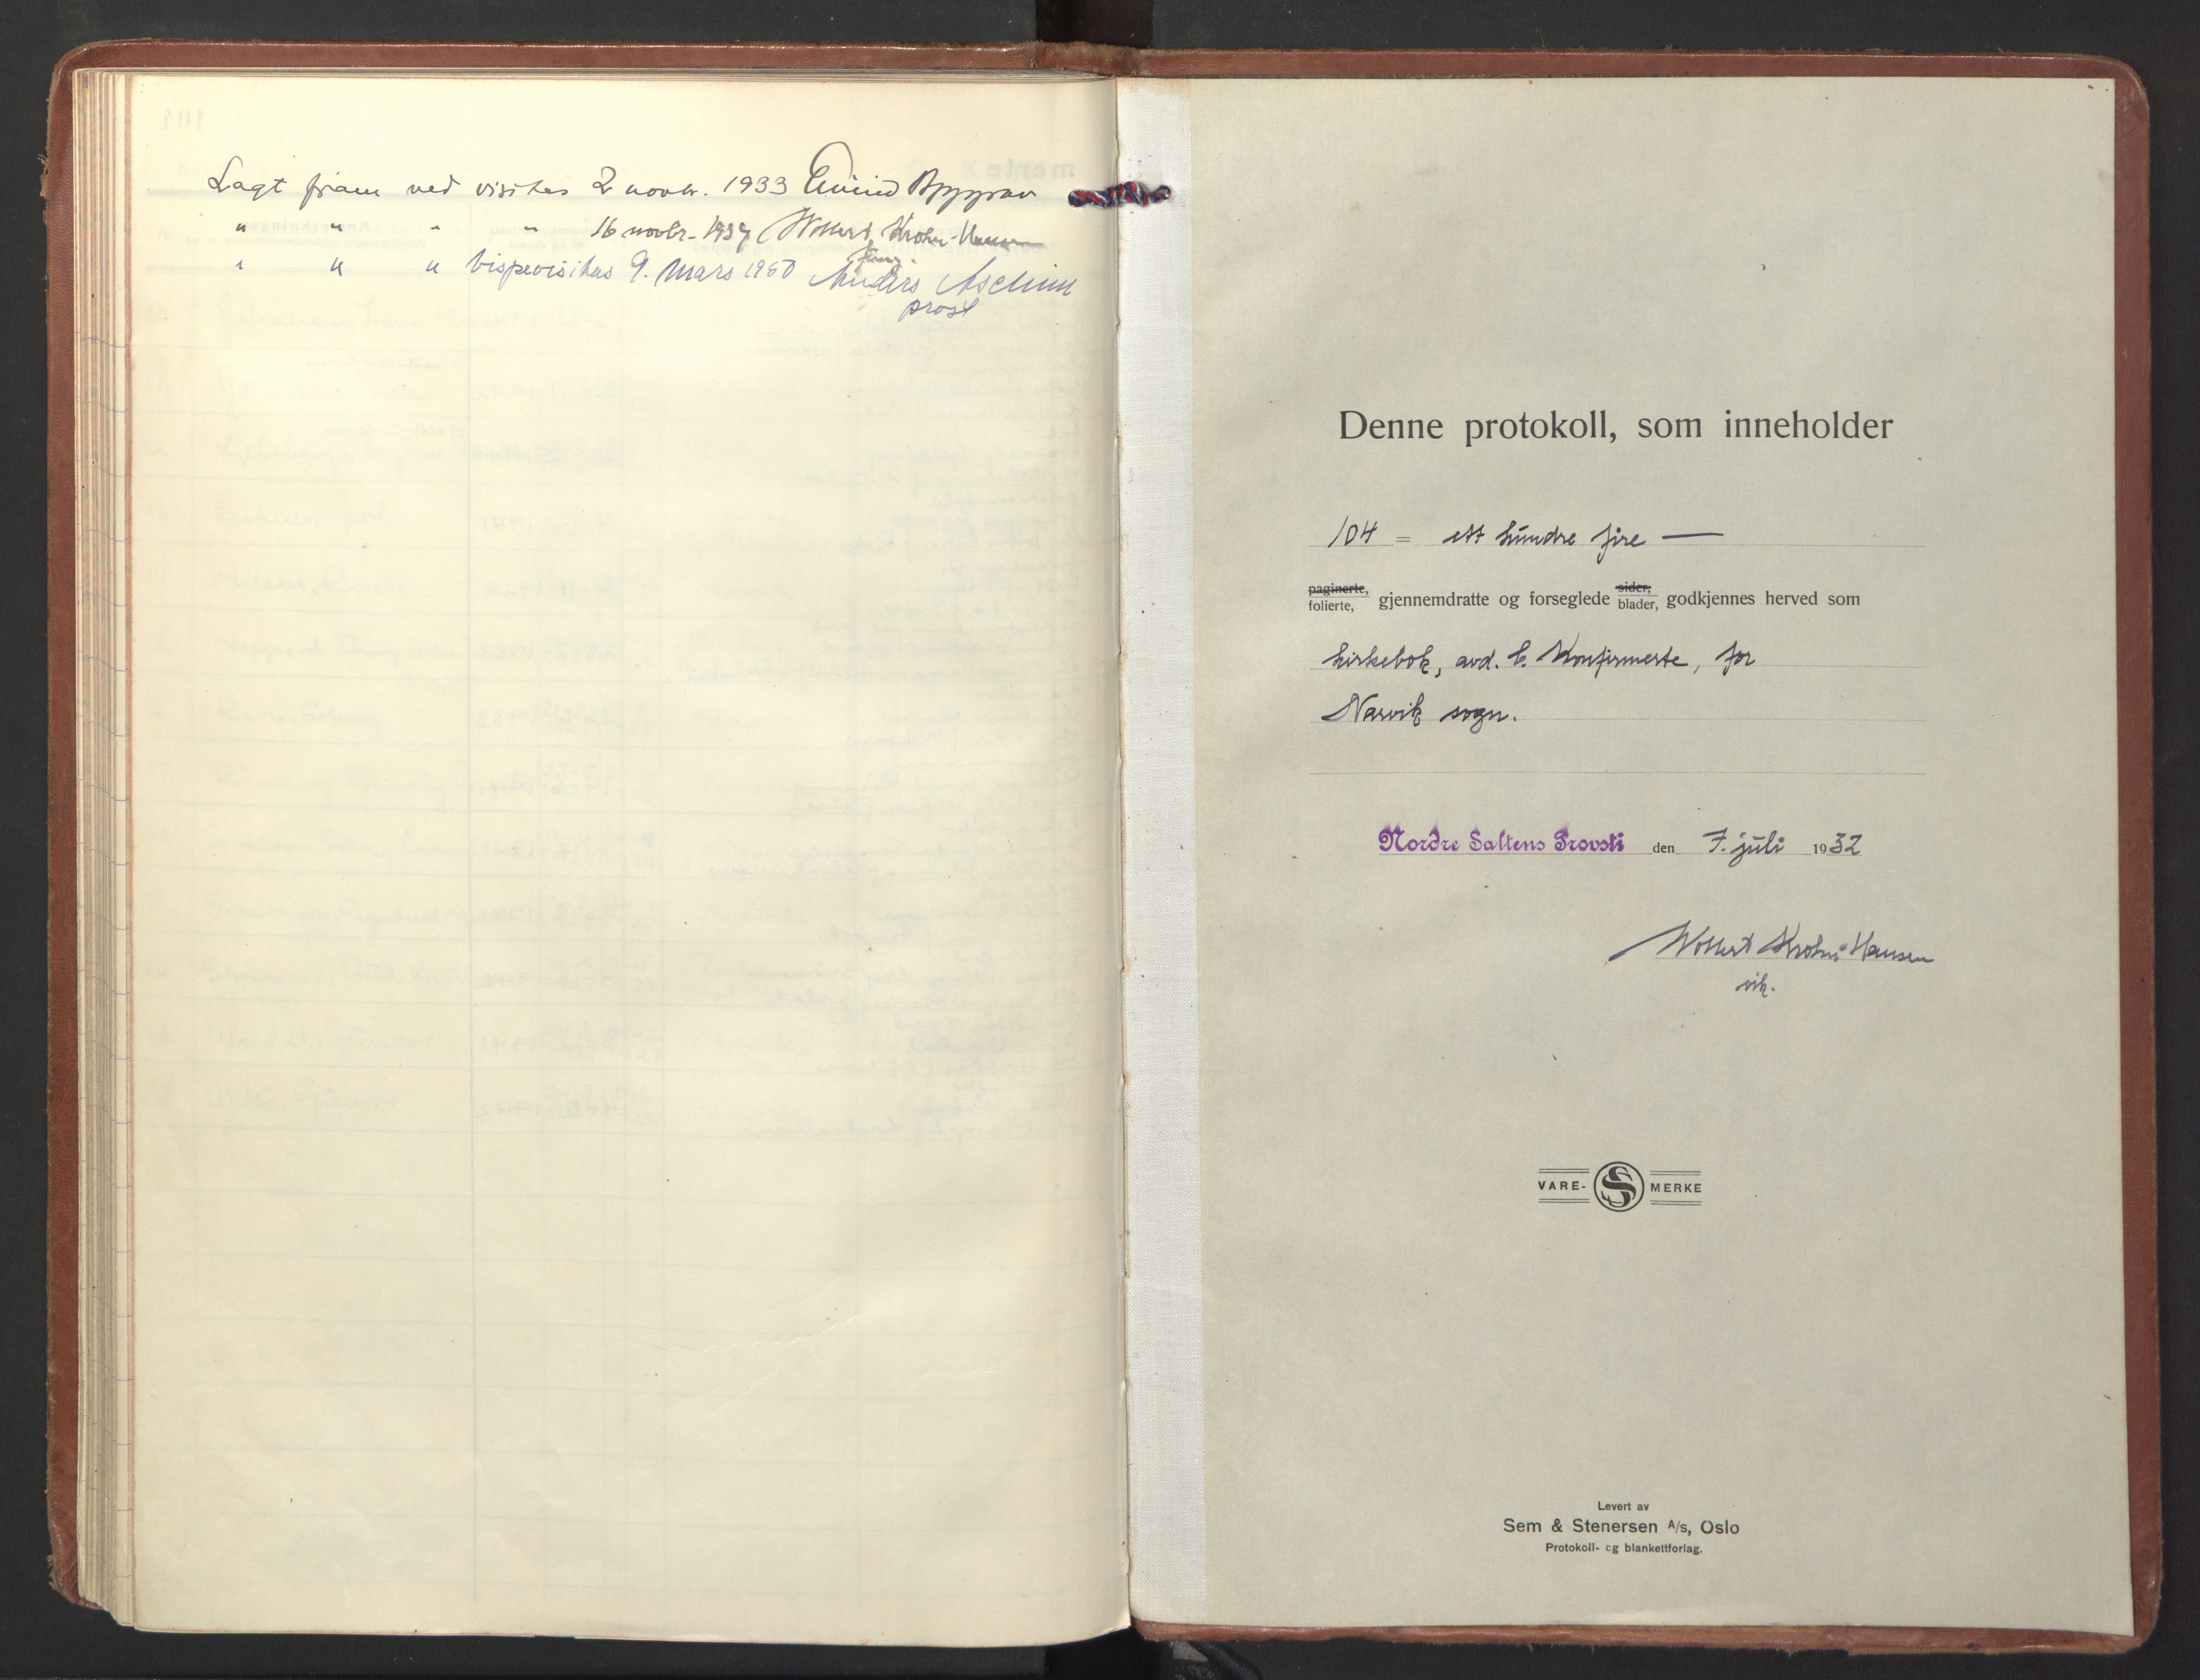 Lagt fram ved visitas 2 novbr. 1933 Eivind Byggrav
" " " " 16 novbr. 1937 Wollert Krohn-Hansen
fung.
" " " bispevisitas 9. Mars 1950 Anders Ascheim
prost
Denne protokoll, som inneholder
104 = ett hundre fire —
paginerte, folierte, gjennemdratte og forseglede sider, blader, godkjennes herved som
kirkebok, avd. C. Konfirmerte, for
Narvik sogn.
Nordre Saltens Provsti den 7. juli 1932
Wollert Krohn-Hansen
vik.
VARE- S MERKE
Levert av
Sem & Stenersen A/s, Oslo
Protokoll- og blankettforlag.